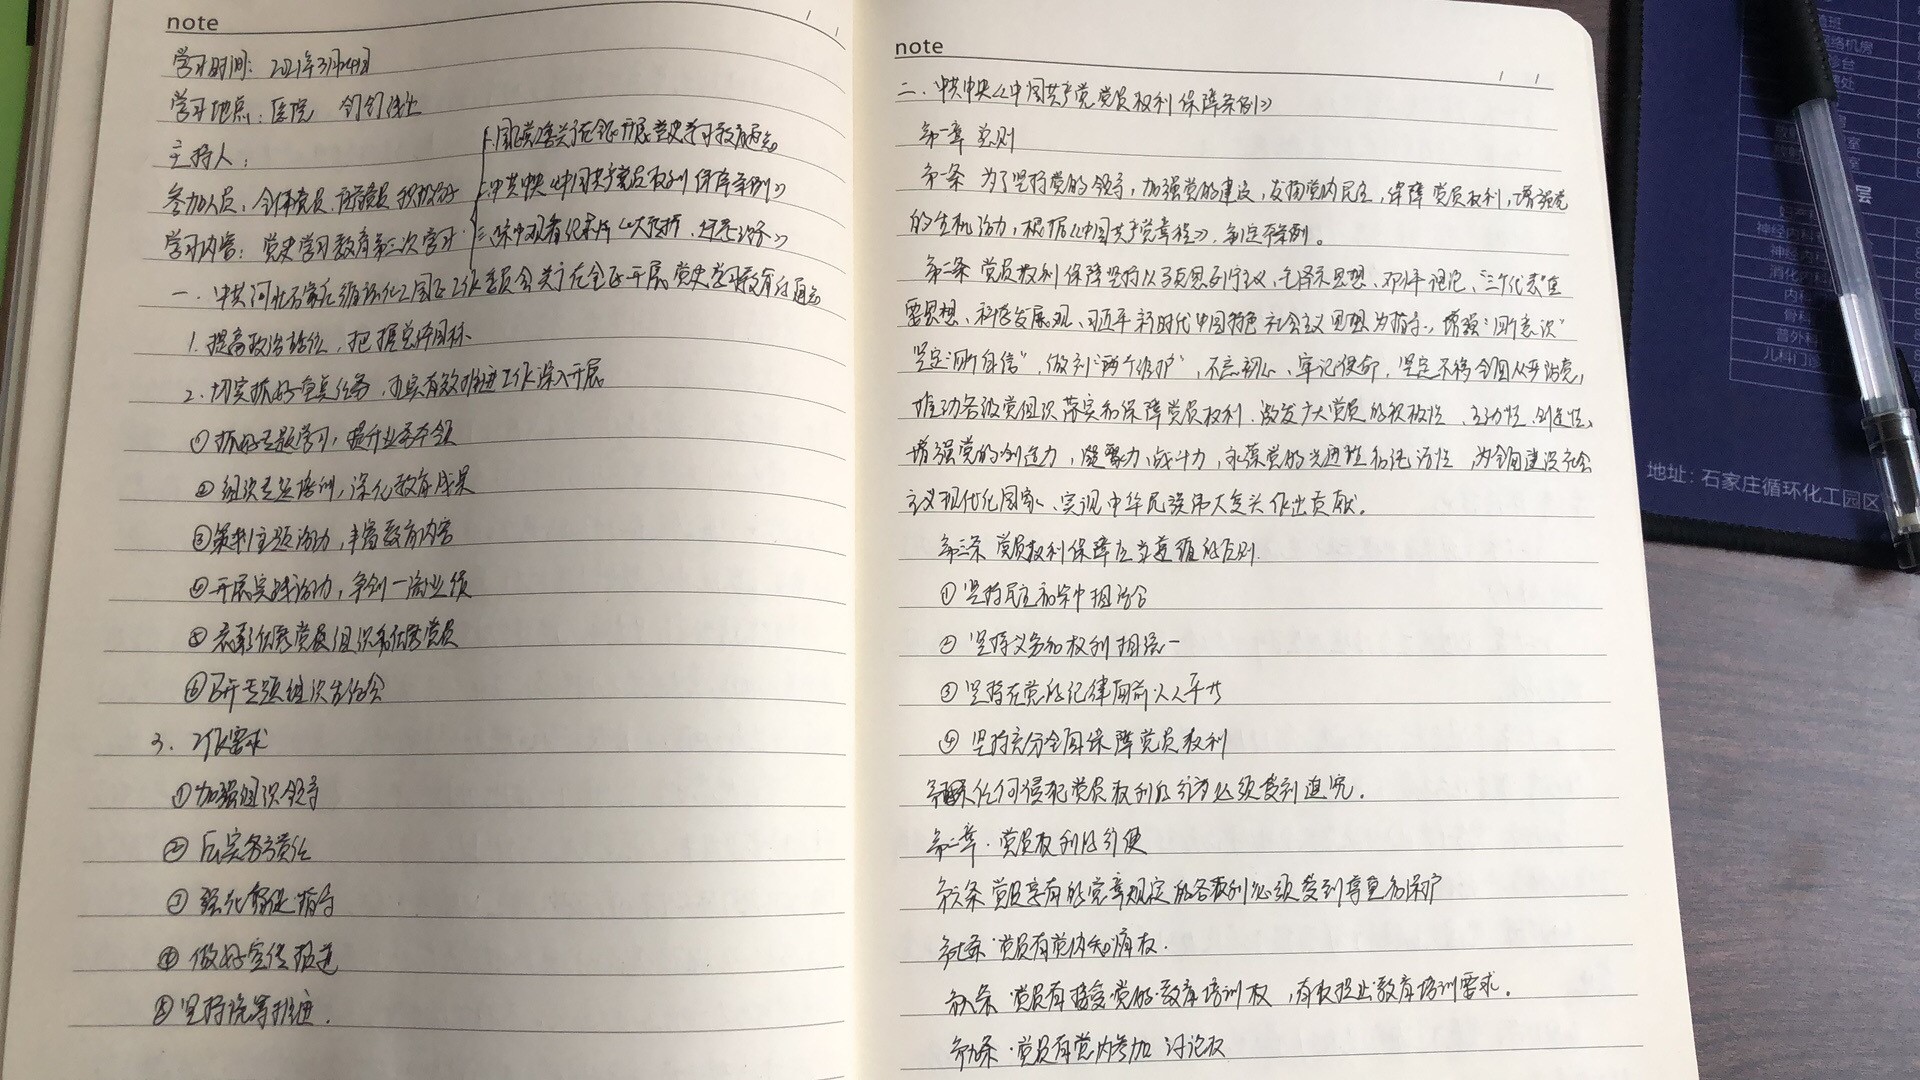 note
学习时间：2021年3月4日
学习地点：医院 钉钉线上
主持人：
参加人员：全体党员、预备党员、积极分子
学习内容：党史学习教育第三次学习
1.园区党工委关于在全区开展党史学习教育通知
2.中共中央《中国共产党党员权利保障条例》
三、集中观看纪录片
一、中共河北石家庄循环化工园区工作委员会关于在全区开展党史学习教育的通知
1.提高政治站位，把握总体目标
2.切实抓好重点任务，扎实有效推进工作深入开展
①抓好专题学习，提升业务本领
②组织专题培训，深化教育成果
③策划主题活动，丰富教育内容
④开展实践活动，争创一流业绩
⑤表彰优秀党组织和优秀党员
⑥召开专题组织生活会
3.工作要求
①加强组织领导
②压实各方责任
③强化督促指导
④做好宣传报道
⑤坚持统筹推进.
note
二.中共中央《中国共产党党员权利保障条例》
第一章 总则
第一条 为了坚持党的领导，加强党的建设，发扬党内民主，保障党员权利，增强党
的生机活力，根据《中国共产党章程》，制定本条例。
第二条 党员权利保障坚持以马克思列宁主义、毛泽东思想、邓小平理论、“三个代表”重
要思想、科学发展观、习近平新时代中国特色社会主义思想为指导，增强“四个意识”
坚定“四个自信”，做到“两个维护”，不忘初心、牢记使命，坚定不移全面从严治党，
推动各级党组织落实和保障党员权利，激发广大党员的积极性、主动性、创造性，
增强党的创造力，凝聚力，战斗力，永葆党的先进性和纯洁性，为全面建设社会
主义现代化国家、实现中华民族伟大复兴作出贡献。
第三条 党员权利保障应当遵循的原则.
①坚持民主和集中相结合
②坚持义务和权利相统一
③坚持在党的纪律面前人人平等
④坚持充分全面保障党员权利
第四条 任何侵犯党员权利的行为必须受到追究.
第二章.党员权利的行使
第六条 党员享有的党章规定的各权利必须受到尊重和保护
第七条.党员有党内知情权.
第八条 党员有接受党的教育培训权，有权提出教育培训要求.
第九条.党员有党内参加讨论权
络机房
神经内科
消化内科
内科
骨科
普外科
儿科门诊
层
地址：石家庄循环化工园区